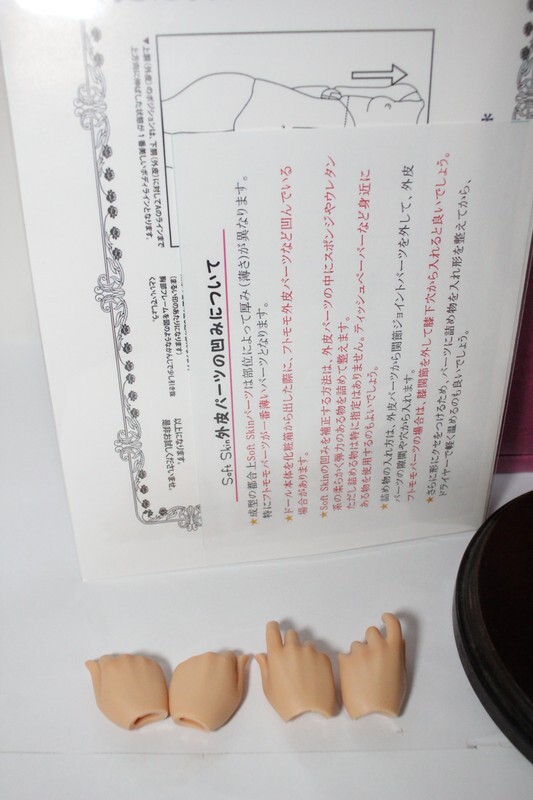 Soft Skin外皮パーツの凹みについて
★成型の都合上Soft Skinパーツは部位によって厚み(薄さ)が異なります。
特にフトモモパーツが一番薄いパーツとなります。
★ドール本体を化粧箱から出した際に、フトモモ外皮パーツなど凹んでいる
場合があります。
★Soft Skinの凹みを補正する方法は、外皮パーツの中にスポンジやウレタン
系の柔らかく弾力のある物を詰めて整えます。
ただし詰める物は特に指定はありません。ティッシュペーパーなど身近に
ある物を使用するのもよいでしょう。
★詰め物の入れ方は、外皮パーツから関節ジョイントパーツを外して、外皮
パーツの隙間や穴から入れます。
フトモモパーツの場合は、膝関節を外して膝下穴から入れると良いでしょう。
★さらに形にクセをつけるため、パーツに詰め物を入れ形を整えてから、
ドライヤーで軽く温めるのも良いでしょう。
▼上胴(外皮)のポジションは、下胴(外皮)に対してAのラインまで
上方向に伸ばした状態が1番美しいボディラインとなります。
くといいでしょう。
以上になります。
是非お試しくださいませ。